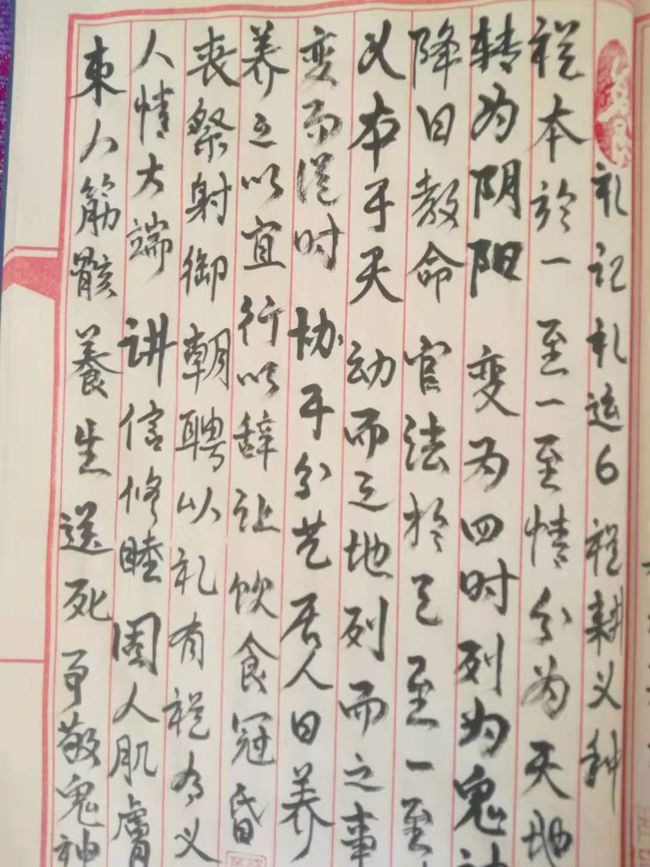 礼记礼运6禮耕义种
禮本於一至一至情分为天地
转为阴阳变为四时列为鬼神
降曰教命官法於天至一至
义本于天动而之地列而之事
变而從时协于分艺居人曰养
养之以宜行以辞让饮食冠昏
丧祭射御朝聘以礼有禮为义
人情大端讲信修睦固人肌膚
束人筋骸養生送死事敬鬼神